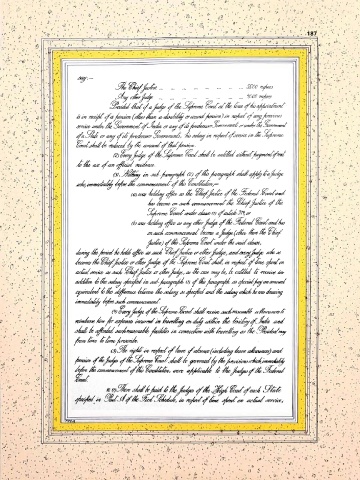 187
say :—
The Chief Justice 5000 rupees
Any other Judge 4000 rupees
Provided that if a Judge of the Supreme Court at the time of his appointment
is in receipt of a pension (other than a disability or wound pension) in respect of any previous
service under the Government of India or any of its predecessor Governments or under the Government
of a State or any of its predecessor Governments, his salary in respect of service in the Supreme
Court shall be reduced by the amount of that pension.
(2) Every Judge of the Supreme Court shall be entitled without payment of rent
to the use of an official residence.
(3) Nothing in sub-paragraph (2) of this paragraph shall apply to a Judge
who, immediately before the commencement of this Constitution,—
(a) was holding office as the Chief Justice of the Federal Court and
has become on such commencement the Chief Justice of the
Supreme Court under clause (1) of article 374, or
(b) was holding office as any other Judge of the Federal Court and has
on such commencement become a Judge (other than the Chief
Justice) of the Supreme Court under the said clause,
during the period he holds office as such Chief Justice or other Judge, and every Judge who so
becomes the Chief Justice or other Judge of the Supreme Court shall, in respect of time spent on
actual service as such Chief Justice or other Judge, as the case may be, be entitled to receive in
addition to the salary specified in sub-paragraph (1) of this paragraph as special pay an amount
equivalent to the difference between the salary so specified and the salary which he was drawing
immediately before such commencement.
(4) Every Judge of the Supreme Court shall receive such reasonable allowances to
reimburse him for expenses incurred in travelling on duty within the territory of India and
shall be afforded such reasonable facilities in connection with travelling as the President may
from time to time prescribe.
(5) The rights in respect of leave of absence (including leave allowances) and
pension of the Judges of the Supreme Court shall be governed by the provisions which, immediately
before the commencement of this Constitution, were applicable to the Judges of the Federal
Court.
10. (1) There shall be paid to the Judges of the High Court of each State
specified in Part A of the First Schedule, in respect of time spent on actual service,